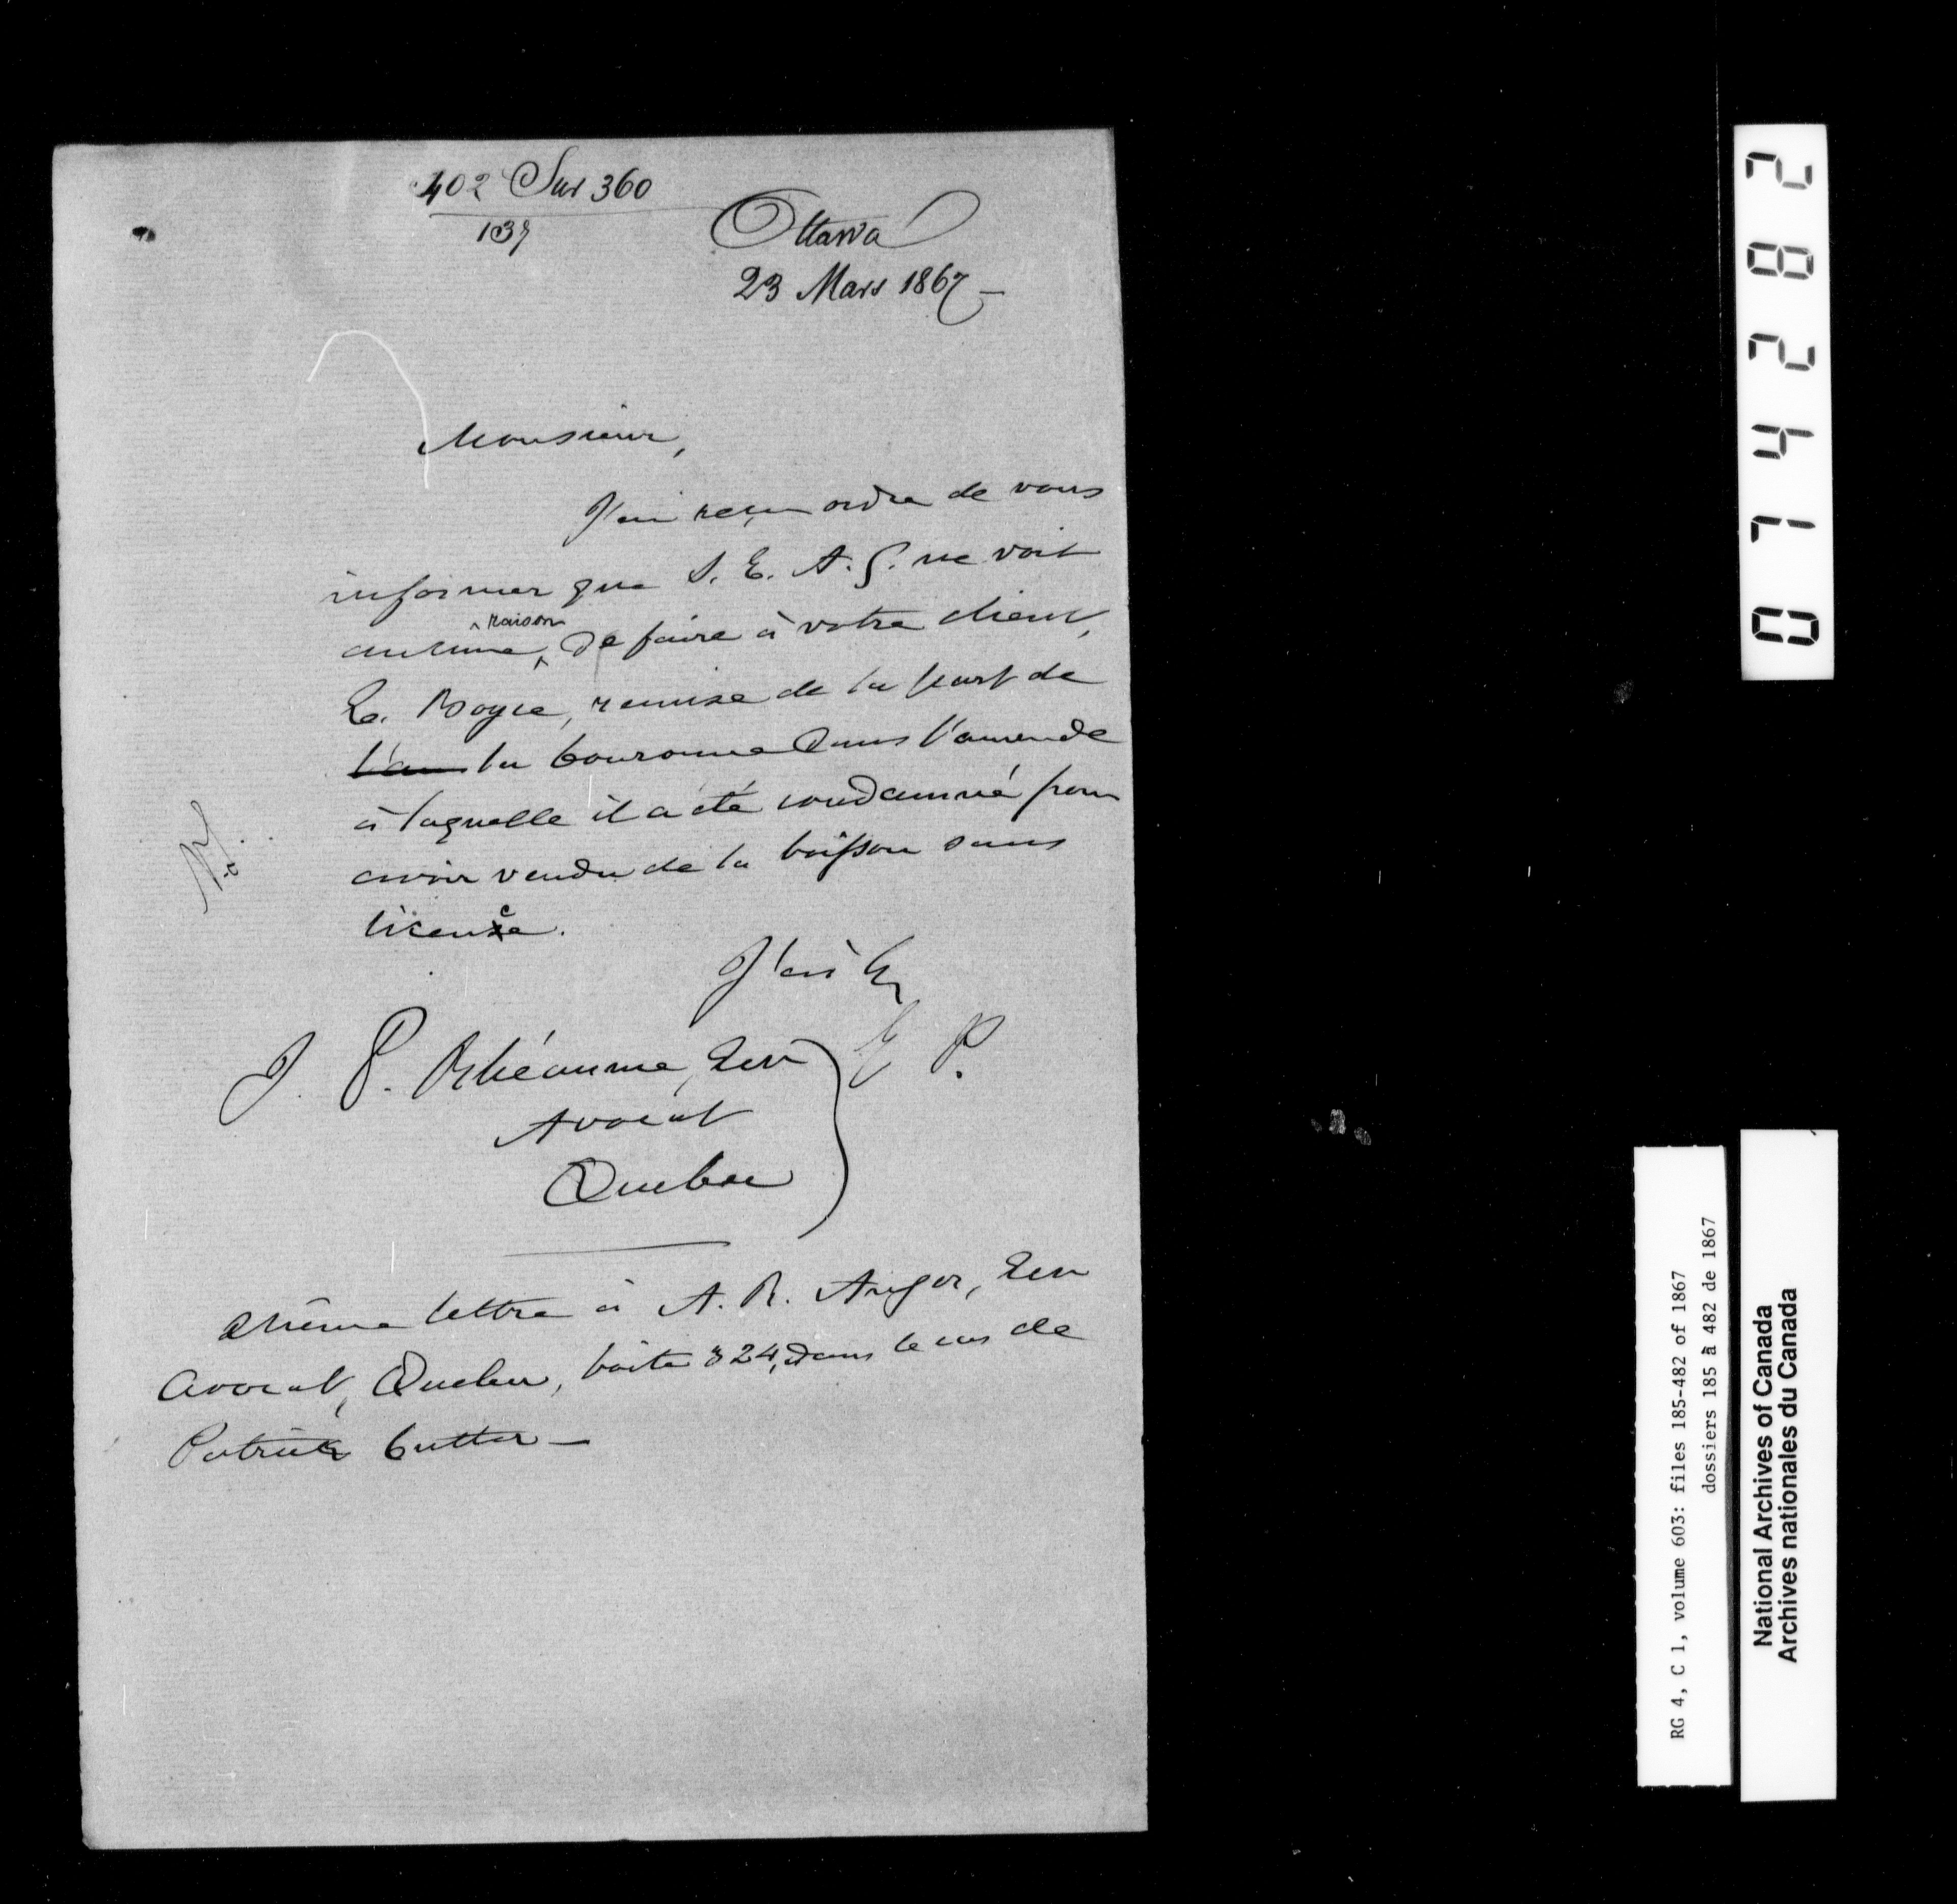 402 Sur 360
137
Ottawa
23 Mars 1867 —
Monsieur,
J'ai reçu ordre de vous
informer que S. E. A. G. ne voit
raison
aucune de faire à votre client,
E. Boyce, remise de la part de
l'am la Couronne dans l'amende
à laquelle il a été condamné pour
avoir vendu de la boisson sans
licence.
J'ai &c
J. P. Rhéaume, Ecr
E P.
Avocat
Quebec
Même lettre à A. R. Anger, Ecr
Avocat, Quebec, boite 324, dans le cas de
Patrick Cutter —
0 7 4 2 8 2
RG 4, C 1, volume 603: files 185-482 of 1867
dossiers 185 à 482 de 1867
National Archives of Canada
Archives nationales du Canada